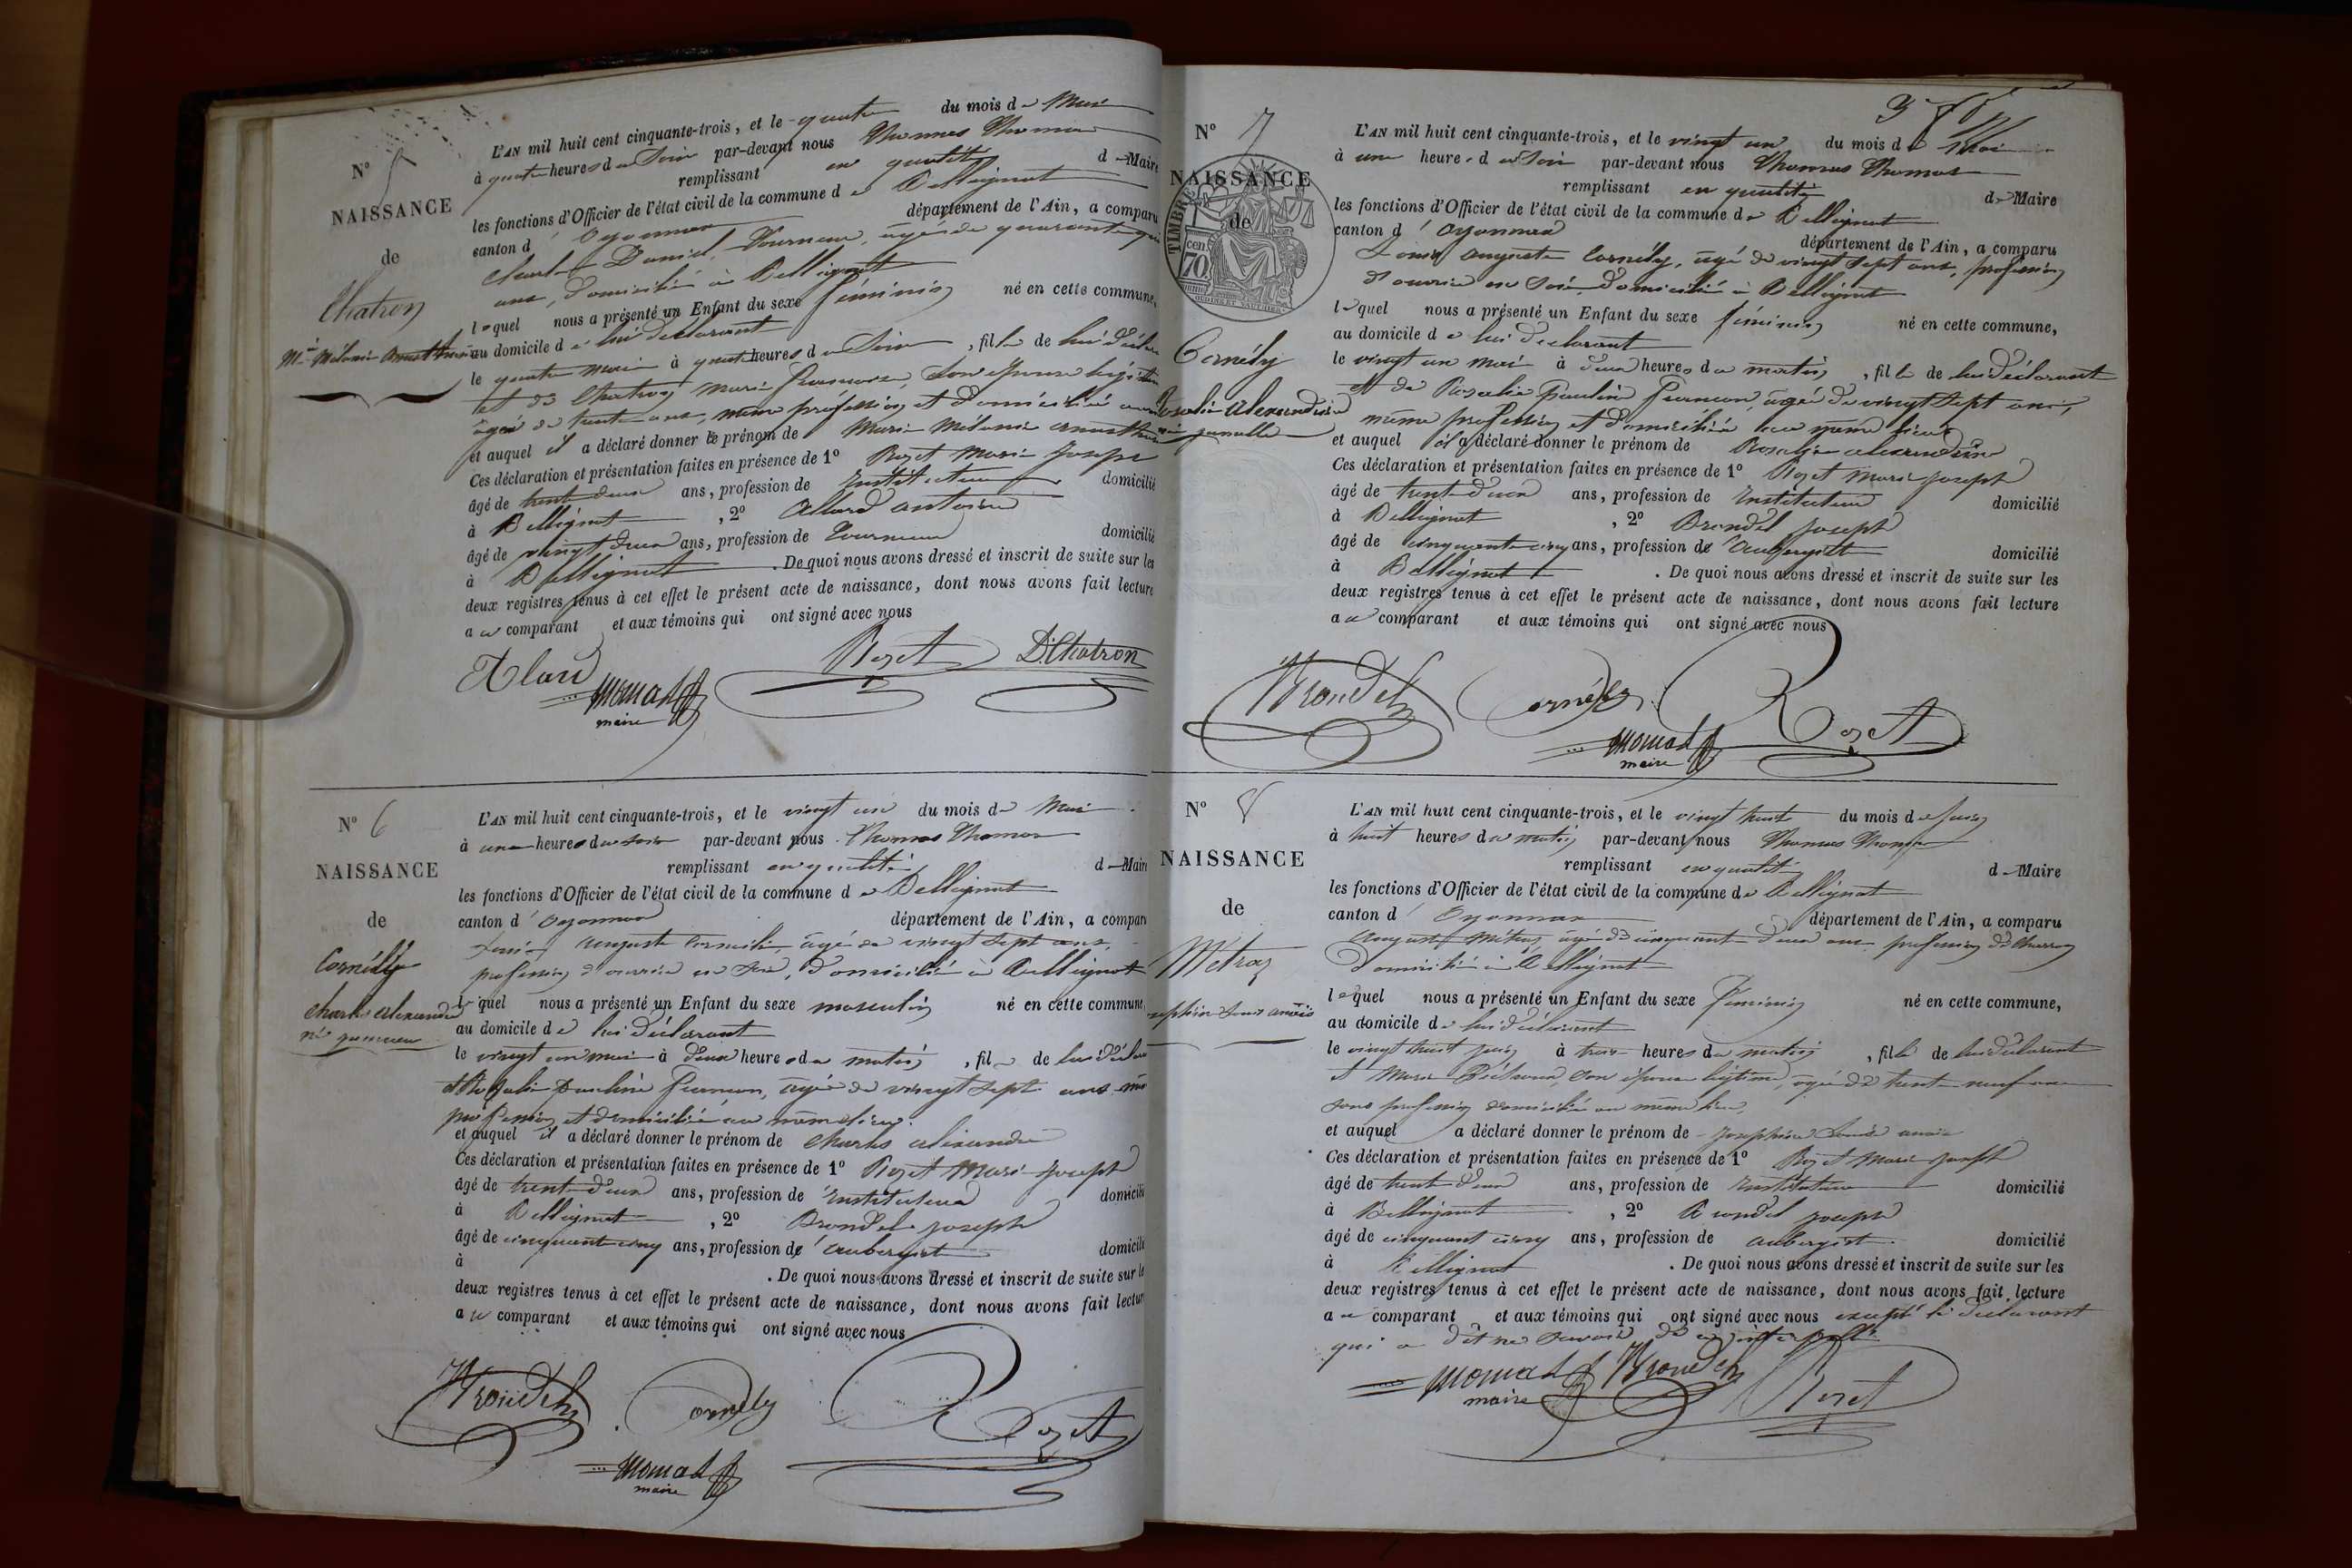 N° 5
NAISSANCE
de
Chatron
Mie Mélanie
L'AN mil huit cent cinquante-trois, et le quatre du mois de Mai
à quatre heures du Soir par-devant nous Thomas Thomas
remplissant en qualité de Maire
les fonctions d'Officier de l'état civil de la commune de Bellignat
canton d'Oyonnax département de l'Ain, a comparu
Daniel, Tourneur, âgé de quarante
ans, domicilié à Bellignat
lequel nous a présenté un Enfant du sexe féminin né en cette commune,
au domicile de lui déclarant
le quatre mai à quatre heures du Soir, fille de lui déclarant
et de Chatron Marie Françoise, son épouse légitime
âgée de trente ans, même profession et domiciliée
et auquel il a déclaré donner le prénom de Marie Mélanie
Ces déclaration et présentation faites en présence de 1° Rozet Marie Joseph
âgé de trente deux ans, profession de Instituteur domicilié
à Bellignat, 2° Allard Antoine
âgé de vingt deux ans, profession de Tourneur domicilié
à Bellignat. De quoi nous avons dressé et inscrit de suite sur les
deux registres tenus à cet effet le présent acte de naissance, dont nous avons fait lecture
au comparant et aux témoins qui ont signé avec nous
Rozet D. Chatron
Alard
Thomas
maire
N° 6
NAISSANCE
de
Cornély
Charles Alexandre
né jumeau
L'AN mil huit cent cinquante-trois, et le vingt un du mois de Mai
à une heure du soir par-devant nous Thomas Thomas
remplissant en qualité de Maire
les fonctions d'Officier de l'état civil de la commune de Bellignat
canton d'Oyonnax département de l'Ain, a comparu
Louis Auguste Cornély, âgé de vingt sept ans,
profession d'ouvrier en soie, domicilié à Bellignat
lequel nous a présenté un Enfant du sexe masculin né en cette commune,
au domicile de lui déclarant
le vingt un mai à deux heures du matin, fils de lui déclarant
et Rosalie Pauline, âgée de vingt sept ans même
profession et domiciliée au même lieu
et auquel il a déclaré donner le prénom de Charles Alexandre
Ces déclaration et présentation faites en présence de 1° Rozet Marie Joseph
âgé de trente deux ans, profession de Instituteur domicilié
à Bellignat, 2° Brondel Joseph
âgé de cinquante cinq ans, profession d'aubergiste domicilié
à . De quoi nous avons dressé et inscrit de suite sur les
deux registres tenus à cet effet le présent acte de naissance, dont nous avons fait lecture
au comparant et aux témoins qui ont signé avec nous
Brondel Cornély Rozet
Thomas
maire
3
N° 7
NAISSANCE
de
TIMBRE
cen.
70
Cornély
Rosalie Alexandrine
née jumelle
L'AN mil huit cent cinquante-trois, et le vingt un du mois de Mai
à une heure du Soir par-devant nous Thomas Thomas
remplissant en qualité de Maire
les fonctions d'Officier de l'état civil de la commune de Bellignat
canton d'Oyonnax département de l'Ain, a comparu
Louis Auguste Cornély, âgé de vingt sept ans, profession
d'ouvrier en soie, domicilié à Bellignat
lequel nous a présenté un Enfant du sexe féminin né en cette commune,
au domicile de lui déclarant
le vingt un mai à deux heures du matin, fille de lui déclarant
et de Rosalie Pauline, âgée de vingt sept ans,
même profession et domiciliée au même lieu
et auquel il a déclaré donner le prénom de Rosalie Alexandrine
Ces déclaration et présentation faites en présence de 1° Rozet Marie Joseph
âgé de trente deux ans, profession de Instituteur domicilié
à Bellignat, 2° Brondel Joseph
âgé de cinquante cinq ans, profession d'aubergiste domicilié
à Bellignat. De quoi nous avons dressé et inscrit de suite sur les
deux registres tenus à cet effet le présent acte de naissance, dont nous avons fait lecture
au comparant et aux témoins qui ont signé avec nous
Brondel Cornély Rozet
Thomas
maire
N° 8
NAISSANCE
de
Métraz
L'AN mil huit cent cinquante-trois, et le vingt huit du mois de Juin
à huit heures du matin par-devant nous Thomas Thomas
remplissant en qualité de Maire
les fonctions d'Officier de l'état civil de la commune de Bellignat
canton d'Oyonnax département de l'Ain, a comparu
Auguste Métraz, âgé de cinquante deux ans profession de Charron
domicilié à Bellignat
lequel nous a présenté un Enfant du sexe féminin né en cette commune,
au domicile de lui déclarant
le vingt huit juin à trois heures du matin, fille de lui déclarant
et Marie, son épouse légitime, âgée de trente neuf ans
sans profession domiciliée au même lieu,
et auquel a déclaré donner le prénom de Joséphine
Ces déclaration et présentation faites en présence de 1° Rozet Marie Joseph
âgé de trente deux ans, profession de Instituteur domicilié
à Bellignat, 2° Brondel Joseph
âgé de cinquante cinq ans, profession de aubergiste domicilié
à Bellignat. De quoi nous avons dressé et inscrit de suite sur les
deux registres tenus à cet effet le présent acte de naissance, dont nous avons fait lecture
au comparant et aux témoins qui ont signé avec nous excepté le déclarant
qui a dit ne savoir de ce interpellé
Thomas Brondel Rozet
maire